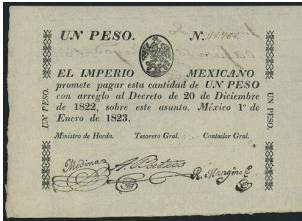 UN PESO.
N.
EL IMPERIO MEXICANO
promete pagar esta cantidad de UN PESO
con arreglo al Decreto de 20 de Diciembre
de 1822, sobre este asunto. México 1º de
Enero de 1823.
Ministro de Hacda. Tesorero Gral. Contador Gral.
Medina
UN PESO.
UN PESO.